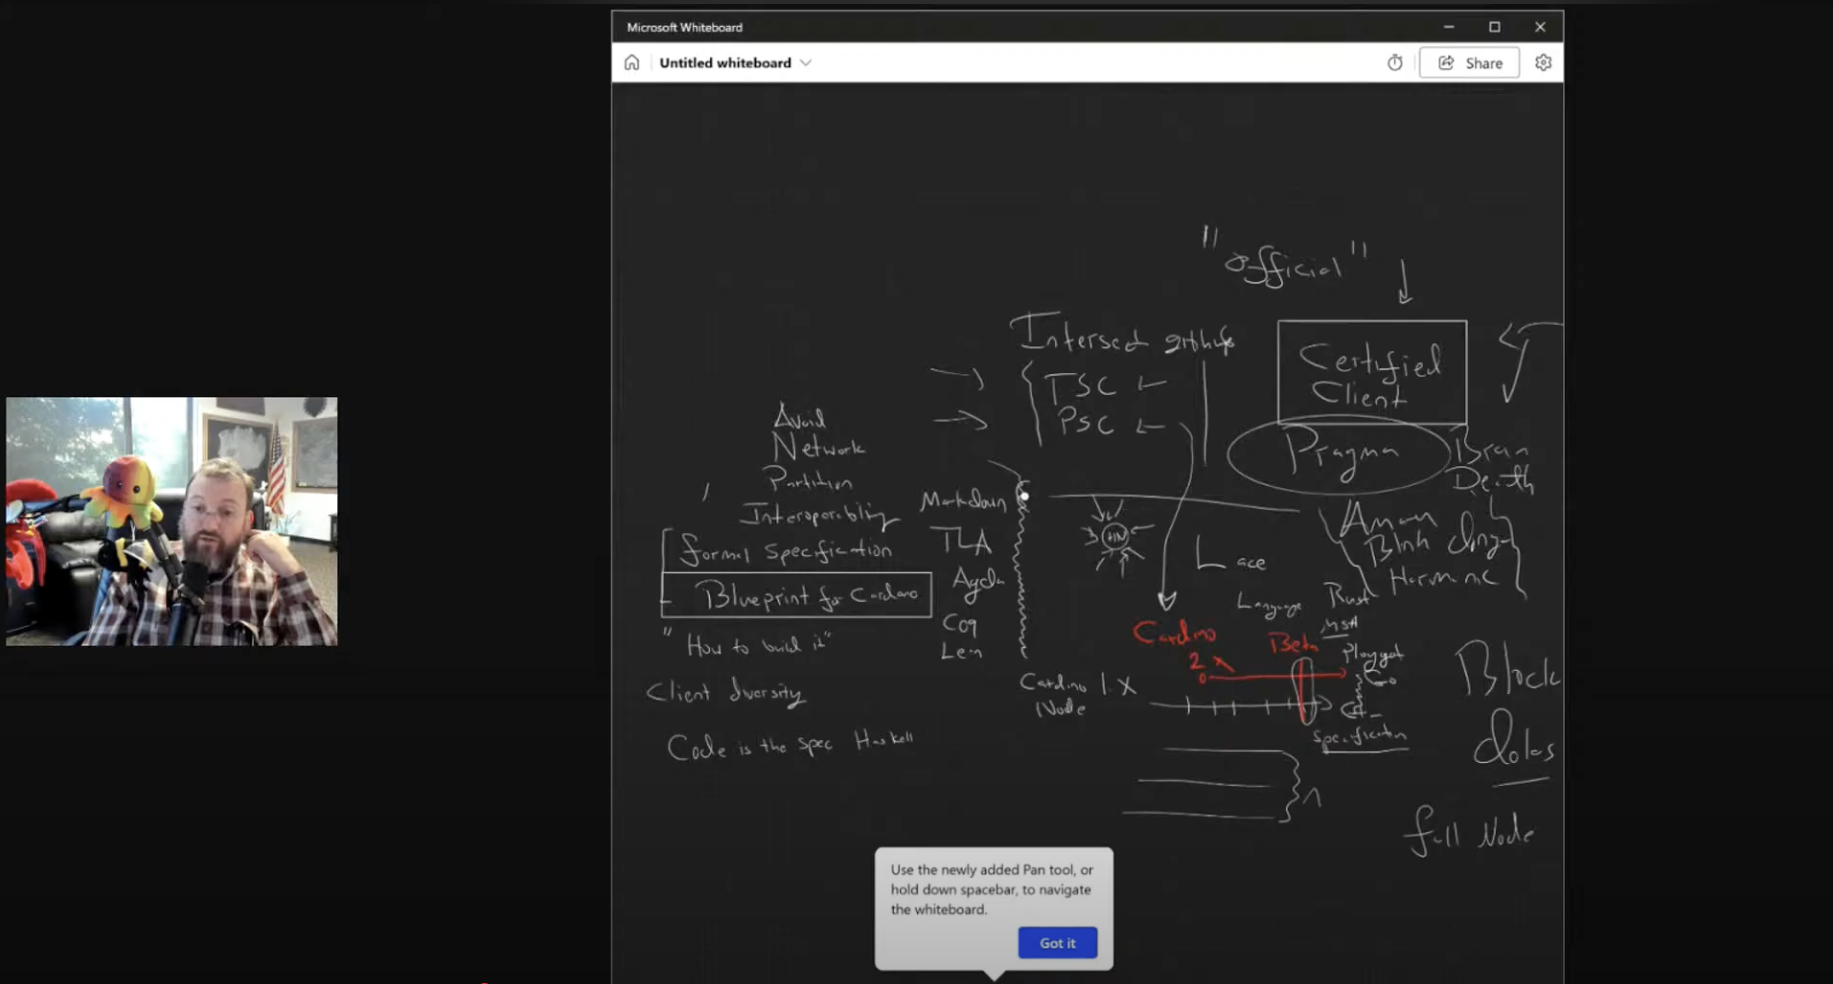 Microsoft Whiteboard
Untitled whiteboard
Share
"official"
Intersect githubs
TSC
PSC
Certified
Client
Pragma
Brain
Death
Avoid
Network
Partition
Interoperability
Formal Specification
Blueprint for Cardano
"How to build it"
Client diversity
Code is the spec Haskell
Markdown
TLA
Agda
Coq
Lean
Lace
Language
Rust
Cardano
2
Beta
Cardano 1.X
Node
Go
C++
Specification
Block
full Node
Use the newly added Pan tool, or
hold down spacebar, to navigate
the whiteboard.
Got it